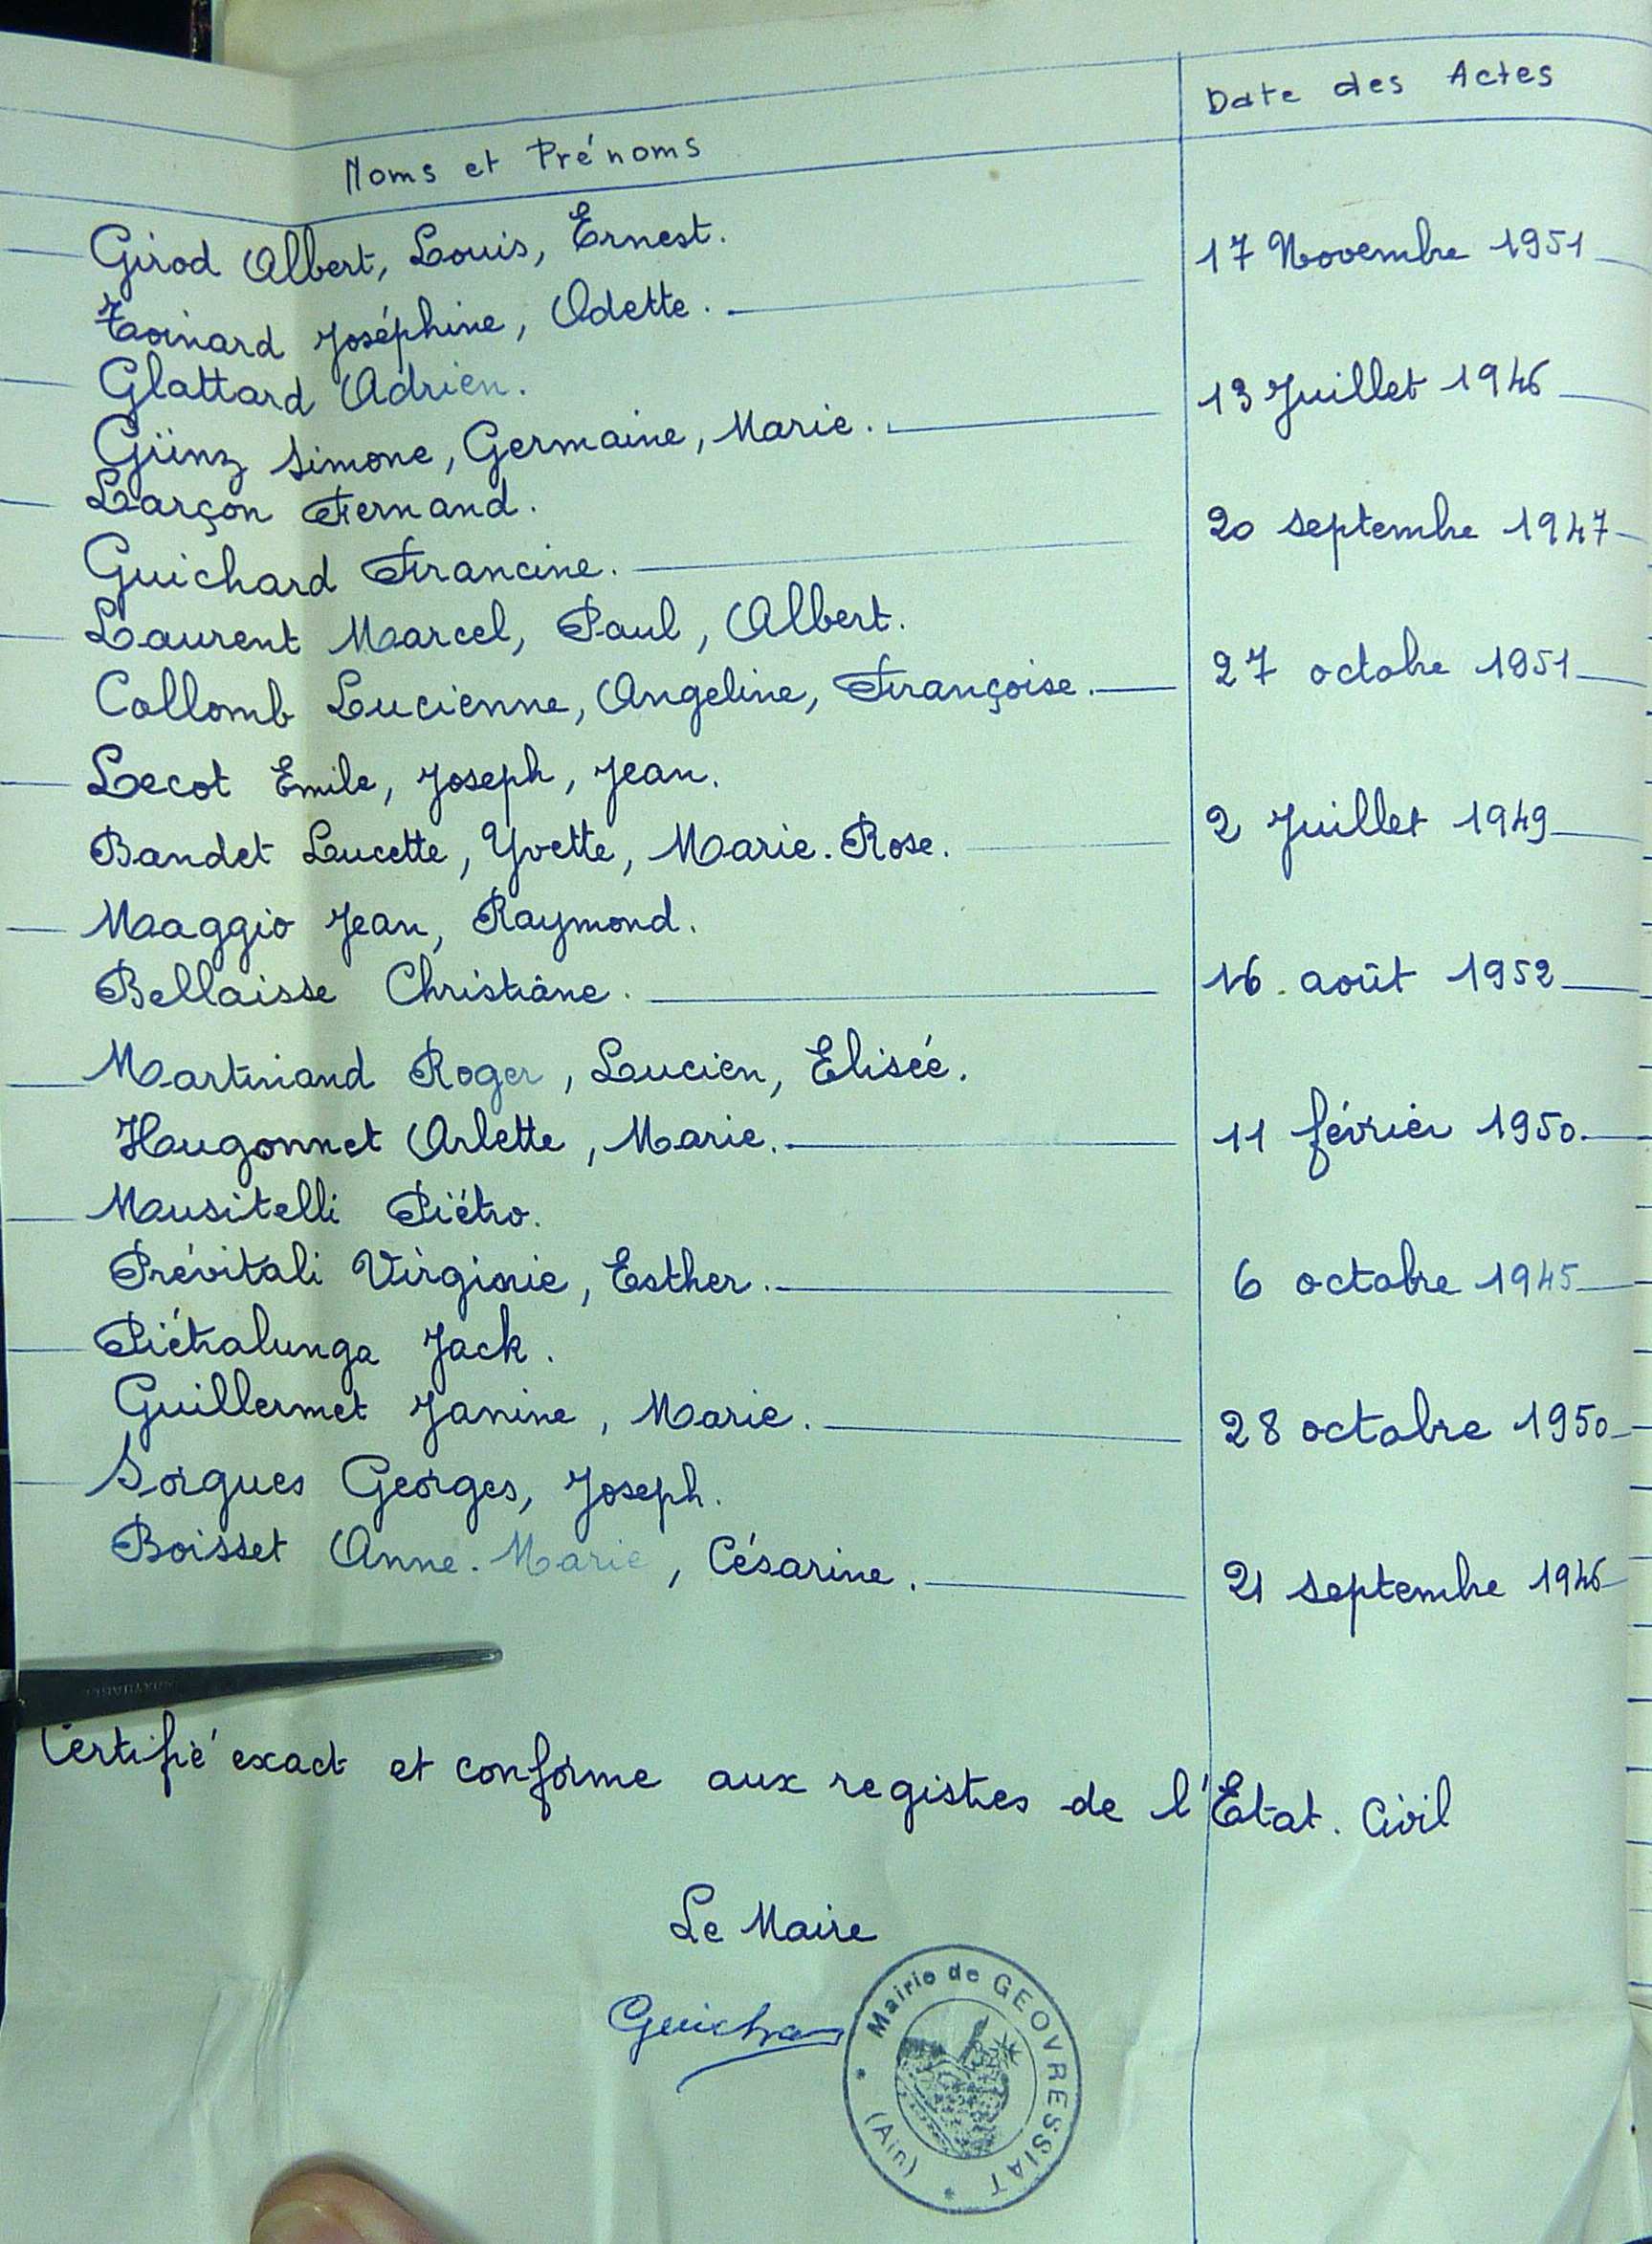 Noms et Prénoms
Date des Actes
Girod Albert, Louis, Ernest.
17 Novembre 1951
Toinard Joséphine, Odette.
Glattard Adrien.
13 Juillet 1946
Günz Simone, Germaine, Marie.
Larçon Fernand.
20 septembre 1947
Guichard Francine.
Laurent Marcel, Paul, Albert.
27 octobre 1951
Collomb Lucienne, Angeline, Françoise.
Lecot Emile, Joseph, Jean.
2 Juillet 1949
Bandet Lucette, Yvette, Marie.Rose.
Maggio Jean, Raymond.
16. août 1952
Bellaisse Christiâne.
Martiniand Roger, Lucien, Elisée.
11 février 1950
Hugonnet Arlette, Marie.
Musitelli Piétro.
6 octobre 1945
Prévitali Virginie, Esther.
Piétralunga Jack.
28 octobre 1950
Guillermet Janine, Marie.
Sorgues Georges, Joseph.
21 septembre 1946
Boisset Anne.Marie, Césarine.
Certifié exact et conforme aux registres de l'Etat. Civil
Le Maire
Mairie de GEOVRESSIAT
(Ain)